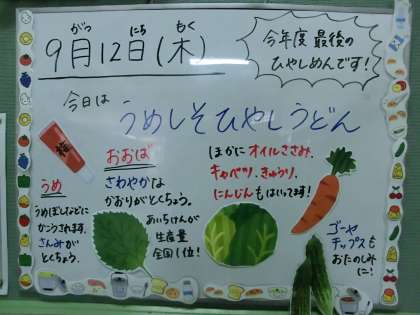 がつ にち もく
9月12日(木)
今年度 最後の
ひやしめんです!
今日は
うめしそひやしうどん
梅
うめ
うめぼしなどに
かこうされます。
さんみが
とくちょう。
おおば
さわやかな
かおりがとくちょう。
あいちけんが
生産量
全国1位!
ほかに オイルささみ、
キャベツ、きゅうり、
にんじんもはいってます!
ゴーヤ
チップスも
おたのしみ
に!